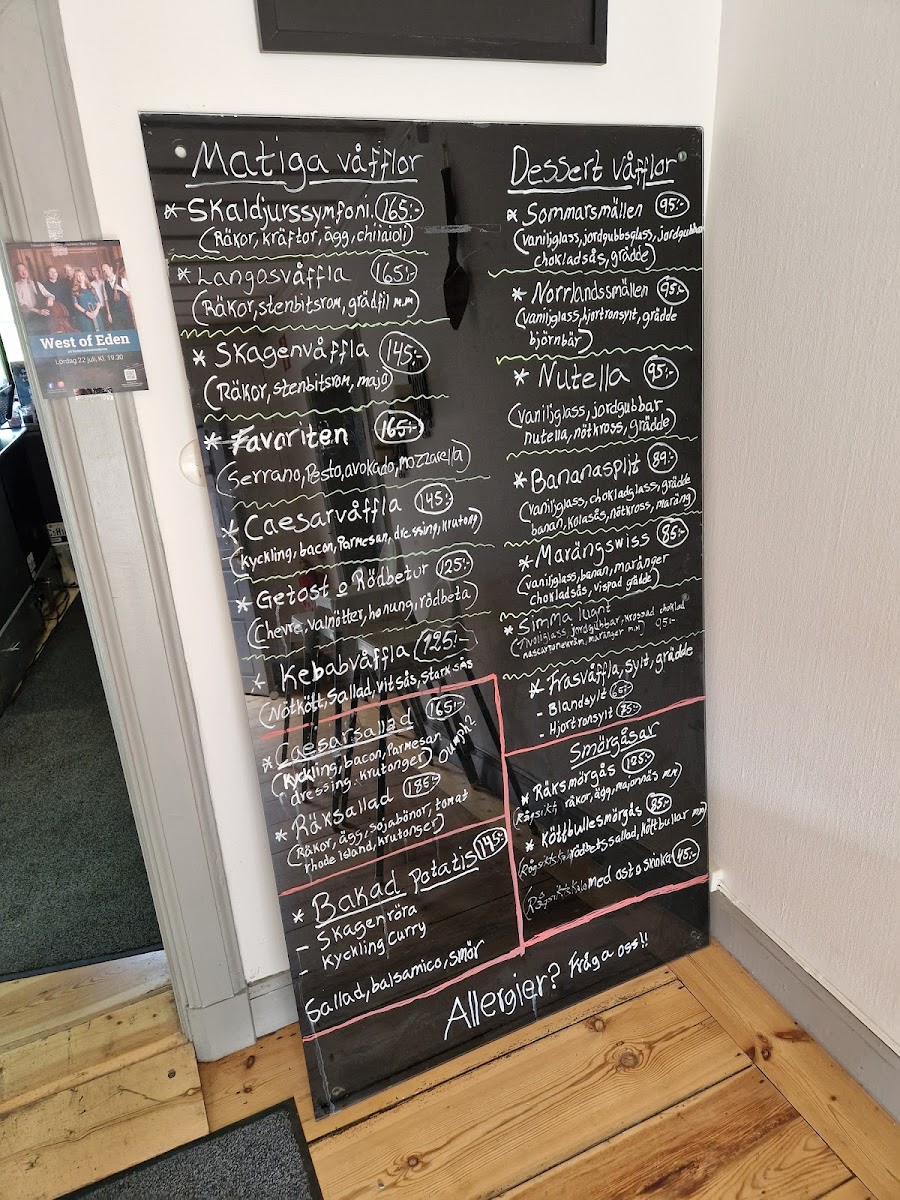 Matiga våfflor
* Skaldjurssymfoni. 165:-
(Räkor, kräftor, ägg, chiliaioli)
* Langosvåffla 165:-
(Räkor, stenbitsrom, gräddfil m.m)
* Skagenvåffla 145:-
(Räkor, stenbitsrom, majo)
* Favoriten 165:-
(serrano, Pesto, avokado, mozzarella)
* Caesarvåffla 145:-
(kyckling, bacon, Parmesan, dressing, krutong)
* Getost o Rödbetor 125:-
(chevre, valnötter, honung, rödbeta)
* Kebabvåffla 125:-
(Nötkött, Sallad, Vitsås, Stark sås
* Caesarsallad 165:-
(kyckling, bacon, Parmesan
dressing, krutonger) Oumph?
* Räksallad 185:-
(Räkor, ägg, sojabönor, tomat
rhode island, krutonger)
* Bakad Potatis 145:-
- Skagenröra
- Kyckling Curry
Sallad, balsamico, smör
Dessert våfflor
* Sommarsmällen 95:-
(vaniljglass, jordgubbsglass, jordgubbar
chokladsås, grädde)
* Norrlandssmällen 95:-
(vaniljglass, hjortronsylt, grädde
björnbär)
* Nutella 95:-
(vaniljglass, jordgubbar
nutella, nötkross, grädde)
* Bananasplit 89:-
(vaniljglass, chokladglass, grädde
banan, kolasås, nötkross, maräng)
* Marängswiss 85:-
(vaniljglass, banan, maränger
chokladsås, vispad gädde)
* Simma lugnt
jordgubbar, krossad choklad
mascarponekräm, maränger m.m) 95:-
* Frasvåffla, sylt, grädde
- Blandsylt 65:-
- Hjortronsylt 75:-
Smörgåsar
* Räksmörgås 125:-
räkor, ägg, majonnäs m.m)
* Köttbullesmörgås 85:-
rödbetssallad, köttbullar m.m)
med ost o skinka 45:-
Allergier? Fråga oss!!
West of Eden
Lördag 22 juli, Kl. 19.30